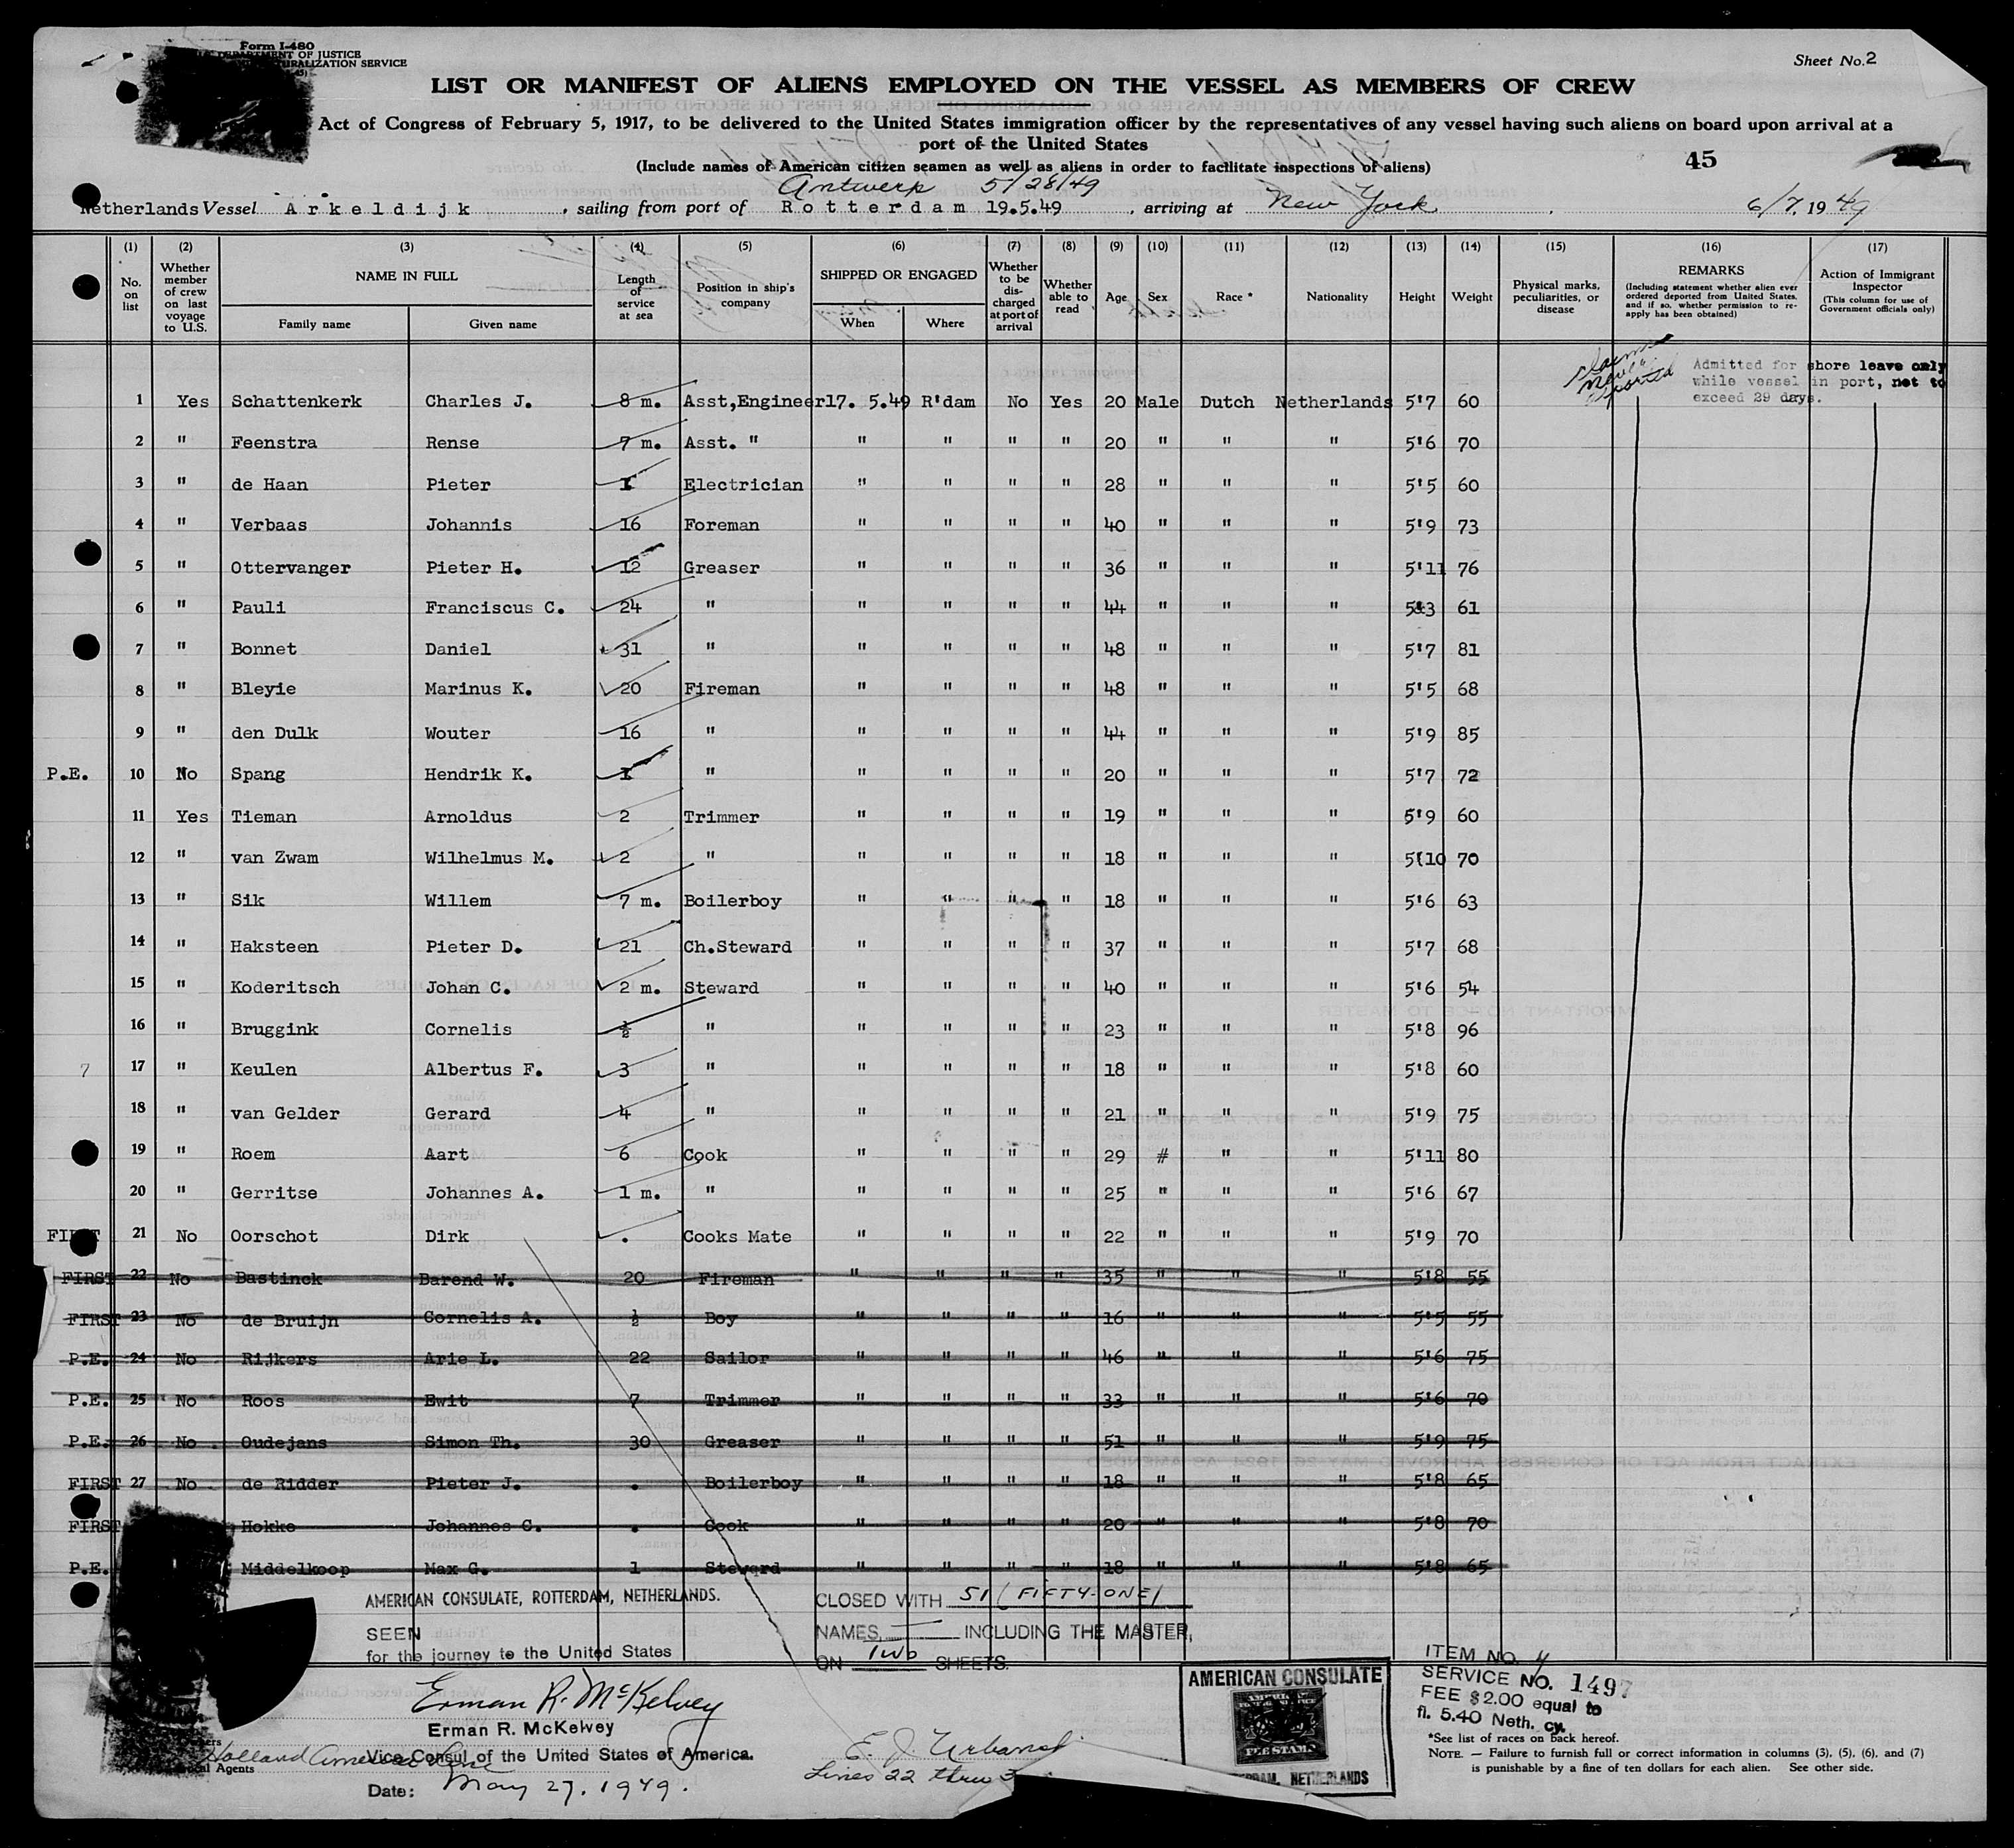 Form I-480
DEPARTMENT OF JUSTICE
NATURALIZATION SERVICE
Sheet No. 2
LIST OR MANIFEST OF ALIENS EMPLOYED ON THE VESSEL AS MEMBERS OF CREW
Act of Congress of February 5, 1917, to be delivered to the United States immigration officer by the representatives of any vessel having such aliens on board upon arrival at a
port of the United States
(Include names of American citizen seamen as well as aliens in order to facilitate inspections of aliens)
45
Antwerp 5/28/49
Netherlands Vessel Arkeldijk, sailing from port of Rotterdam 19.5.49, arriving at New York, 6/7, 1949
(1) (2) (3) (4) (5) (6) (7) (8) (9) (10) (11) (12) (13) (14) (15) (16) (17)
No. on list
Whether member of crew on last voyage to U.S.
NAME IN FULL
Family name Given name
Length of service at sea
Position in ship's company
SHIPPED OR ENGAGED
When Where
Whether to be discharged at port of arrival
Whether able to read
Age Sex Race * Nationality Height Weight
Physical marks, peculiarities, or disease
REMARKS
(Including statement whether alien ever ordered deported from United States, and if so, whether permission to re-apply has been obtained)
Action of Immigrant Inspector
(This column for use of Government officials only)
Admitted for shore leave only
while vessel in port, not to
exceed 29 days.
1 Yes Schattenkerk Charles J. 8 m. Asst,Engineer 17. 5.49 R'dam No Yes 20 Male Dutch Netherlands 5'7 60
2 " Feenstra Rense 7 m. Asst. " " " " " 20 " " " 5'6 70
3 " de Haan Pieter 1 Electrician " " " " 28 " " " 5'5 60
4 " Verbaas Johannis 16 Foreman " " " " 40 " " " 5'9 73
5 " Ottervanger Pieter H. 12 Greaser " " " " 36 " " " 5'11 76
6 " Pauli Franciscus C. 24 " " " " " 44 " " " 5'3 61
7 " Bonnet Daniel 31 " " " " " 48 " " " 5'7 81
8 " Bleyie Marinus K. 20 Fireman " " " " 48 " " " 5'5 68
9 " den Dulk Wouter 16 " " " " " 44 " " " 5'9 85
P.E. 10 No Spang Hendrik K. 1 " " " " " 20 " " " 5'7 72
11 Yes Tieman Arnoldus 2 Trimmer " " " " 19 " " " 5'9 60
12 " van Zwam Wilhelmus M. 2 " " " " " 18 " " " 5(10 70
13 " Sik Willem 7 m. Boilerboy " " " " 18 " " " 5'6 63
14 " Haksteen Pieter D. 21 Ch.Steward " " " " 37 " " " 5'7 68
15 " Koderitsch Johan C. 2 m. Steward " " " " 40 " " " 5'6 54
16 " Bruggink Cornelis ½ " " " " " 23 " " " 5'8 96
7 17 " Keulen Albertus F. 3 " " " " " 18 " " " 5'8 60
18 " van Gelder Gerard 4 " " " " " 21 " " " 5'9 75
19 " Roem Aart 6 Cook " " " " 29 # " " 5'11 80
20 " Gerritse Johannes A. 1 m. " " " " " 25 " " " 5'6 67
FIRST 21 No Oorschot Dirk . Cooks Mate " " " " 22 " " " 5'9 70
FIRST 22 No Bastinck Barend W. 20 Fireman " " " " 35 " " " 5'8 55
FIRST 23 No de Bruijn Cornelis A. ½ Boy " " " " 16 " " " 5'5 55
P.E. 24 No Rijkers Arie L. 22 Sailor " " " " 46 " " " 5'6 75
P.E. 25 No Roos Ewit 7 Trimmer " " " " 33 " " " 5'6 70
P.E. 26 No Oudejans Simon Th. 30 Greaser " " " " 51 " " " 5'9 75
FIRST 27 No de Ridder Pieter J. . Boilerboy " " " " 18 " " " 5'8 65
FIRST Hokke Johannes C. . Cook " " " " 20 " " " 5'8 70
P.E. Middelkoop Max G. 1 Steward " " " " 18 " " " 5'8 65
AMERICAN CONSULATE, ROTTERDAM, NETHERLANDS.
SEEN
for the journey to the United States
CLOSED WITH 51 (FIFTY-ONE)
NAMES, INCLUDING THE MASTER,
ON two SHEETS.
Erman R. McKelvey
Erman R. McKelvey
Vice Consul of the United States of America.
Date: May 27, 1949.
Holland America Line
Agents
E. J. Urbanst
Lines 22 thru
AMERICAN CONSULATE
FEE STAMP
ROTTERDAM, NETHERLANDS
ITEM NO. 4
SERVICE NO. 1497
FEE $2.00 equal to
fl. 5.40 Neth. cy.
*See list of races on back hereof.
NOTE. — Failure to furnish full or correct information in columns (3), (5), (6), and (7)
is punishable by a fine of ten dollars for each alien. See other side.